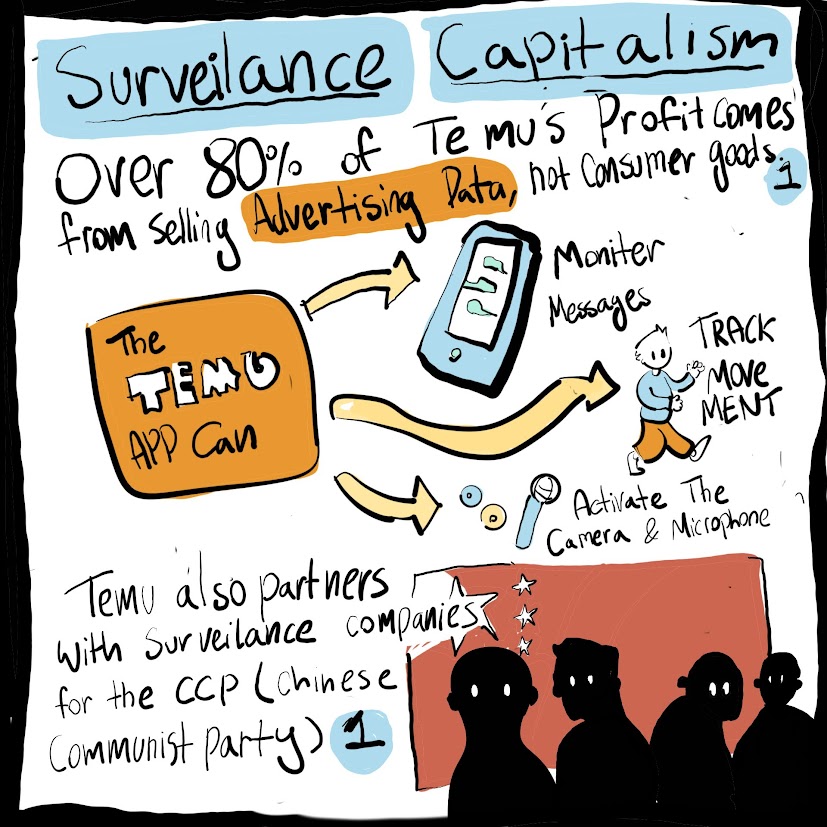 Surveilance Capitalism
Over 80% of Temu's Profit comes
from Selling Advertising Data, not Consumer goods. 1
The
TEMU
APP Can
Moniter
Messages
TRACK
MOVE
MENT
Activate The
Camera & Microphone
Temu also partners
with Surveilance companies
for the CCP (Chinese
Communist party) 1